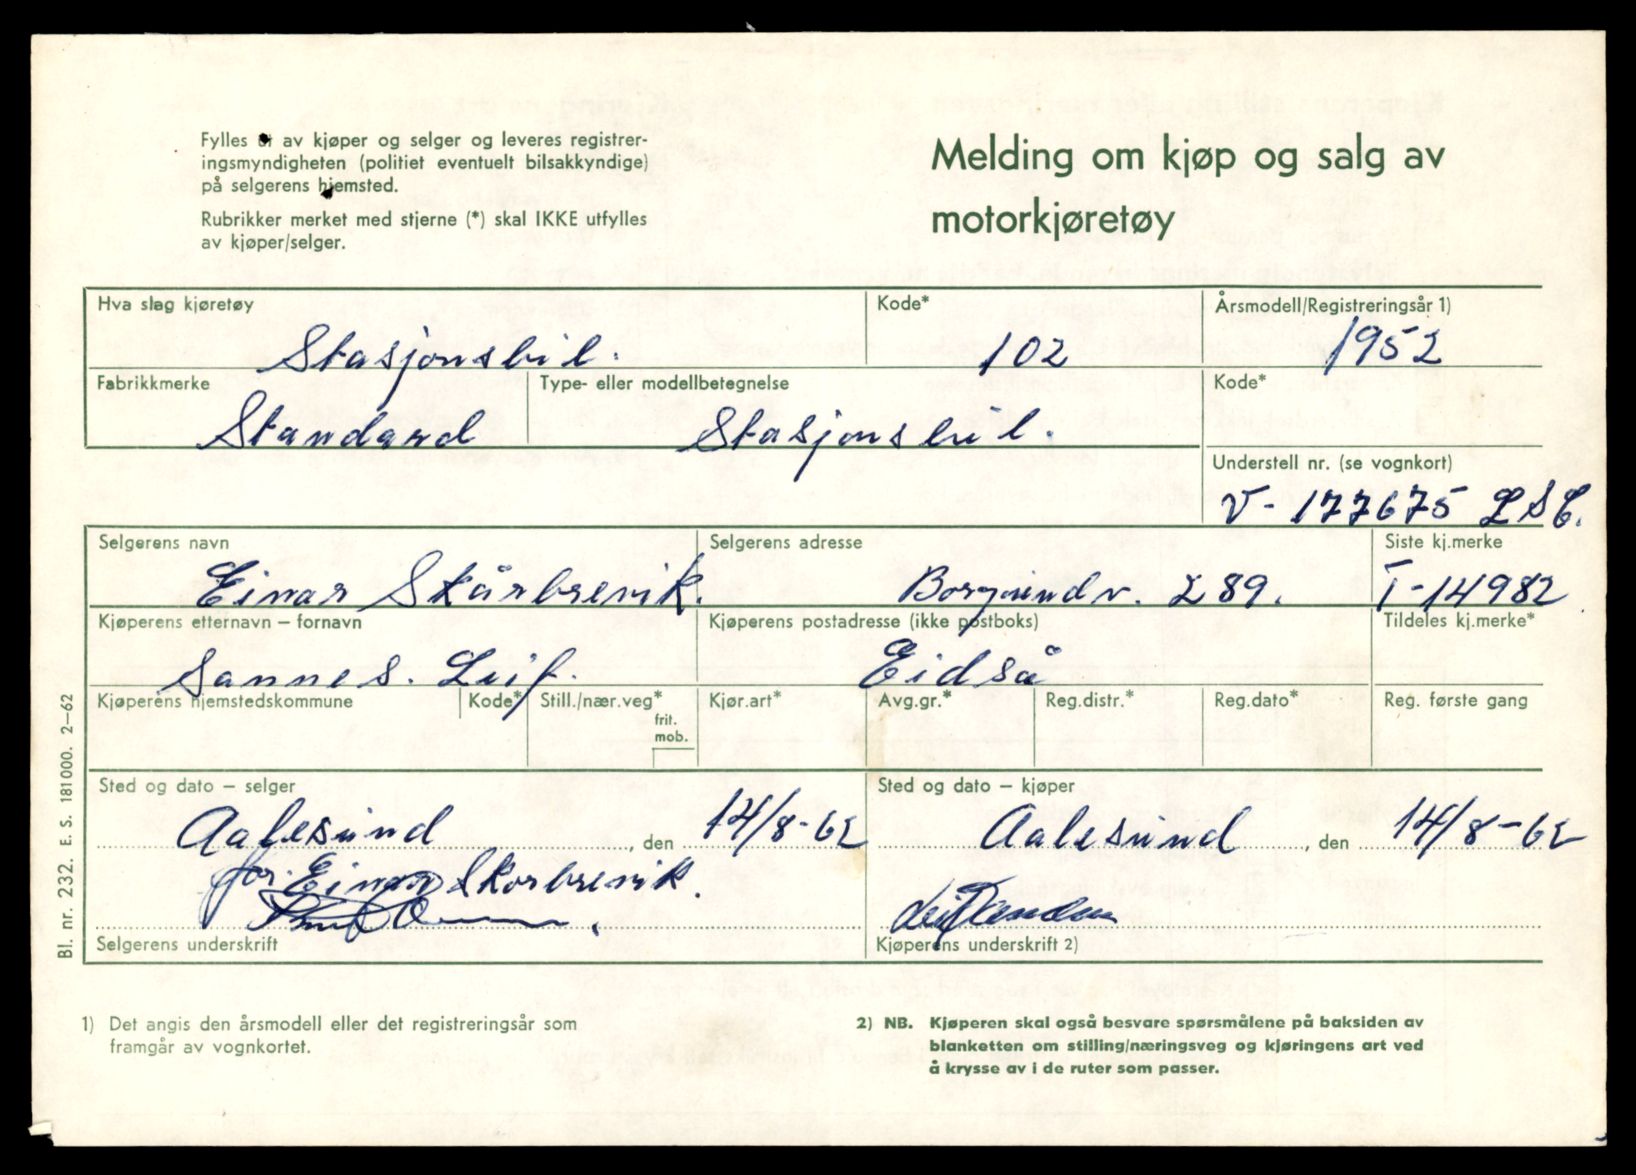 Fylles av kjøper og selger og leveres registrer-
ingsmyndigheten (politiet eventuelt bilsakkyndige)
på selgerens hjemsted.
Rubrikker merket med stjerne (*) skal IKKE utfylles
av kjøper/selger.
Melding om kjøp og salg av
motorkjøretøy
Hva slag kjøretøy
Stasjonsbil.
Kode*
102
Årsmodell/Registreringsår 1)
1952
Fabrikkmerke
Standard
Type- eller modellbetegnelse
Stasjonsbil.
Kode*
Understell nr. (se vognkort)
V-177675 LSC.
Selgerens navn
Einar Skårbrevik.
Selgerens adresse
Borgundv. 289.
Siste kj.merke
T-14982
Kjøperens etternavn – fornavn
Sannes. Leif.
Kjøperens postadresse (ikke postboks)
Eidså
Tildeles kj.merke*
Kjøperens hjemstedskommune
Kode*
Still./nær.veg*
frit.
mob.
Kjør.art*
Avg.gr.*
Reg.distr.*
Reg.dato*
Reg. første gang
Sted og dato – selger
Aalesund, den 14/8-62
for. Einar Skorbrevik.
Selgerens underskrift
Sted og dato – kjøper
Aalesund, den 14/8-62
Leif
Kjøperens underskrift 2)
Bl. nr. 232. E. S. 181000. 2–62
1) Det angis den årsmodell eller det registreringsår som
framgår av vognkortet.
2) NB. Kjøperen skal også besvare spørsmålene på baksiden av
blanketten om stilling/næringsveg og kjøringens art ved
å krysse av i de ruter som passer.